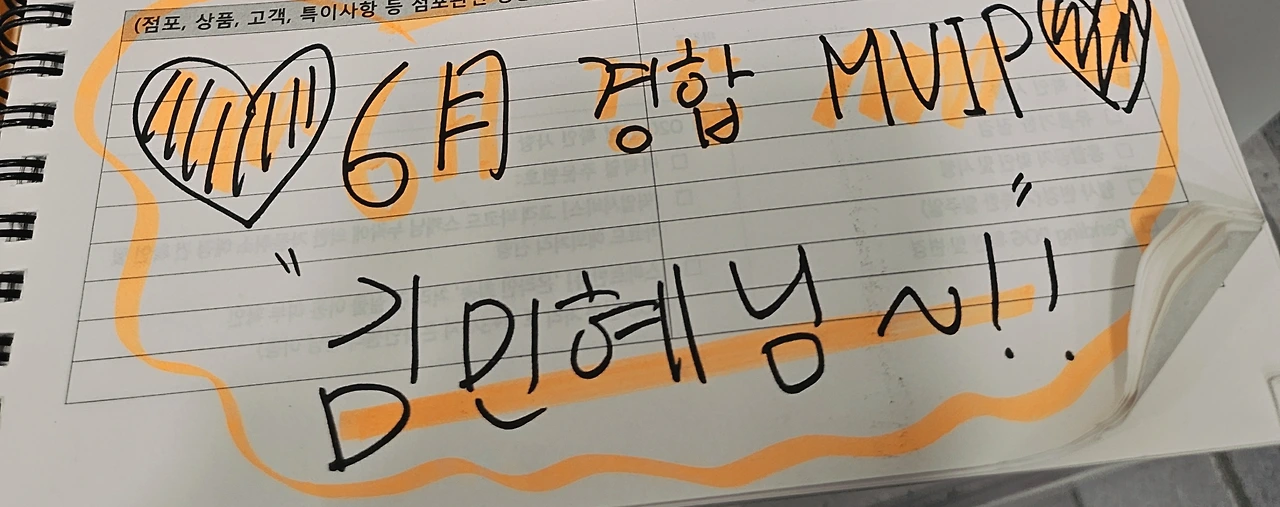 (점포, 상품, 고객, 특이사항 등 점포관련
6月 경합 MVIP
"김민혜님~!!"